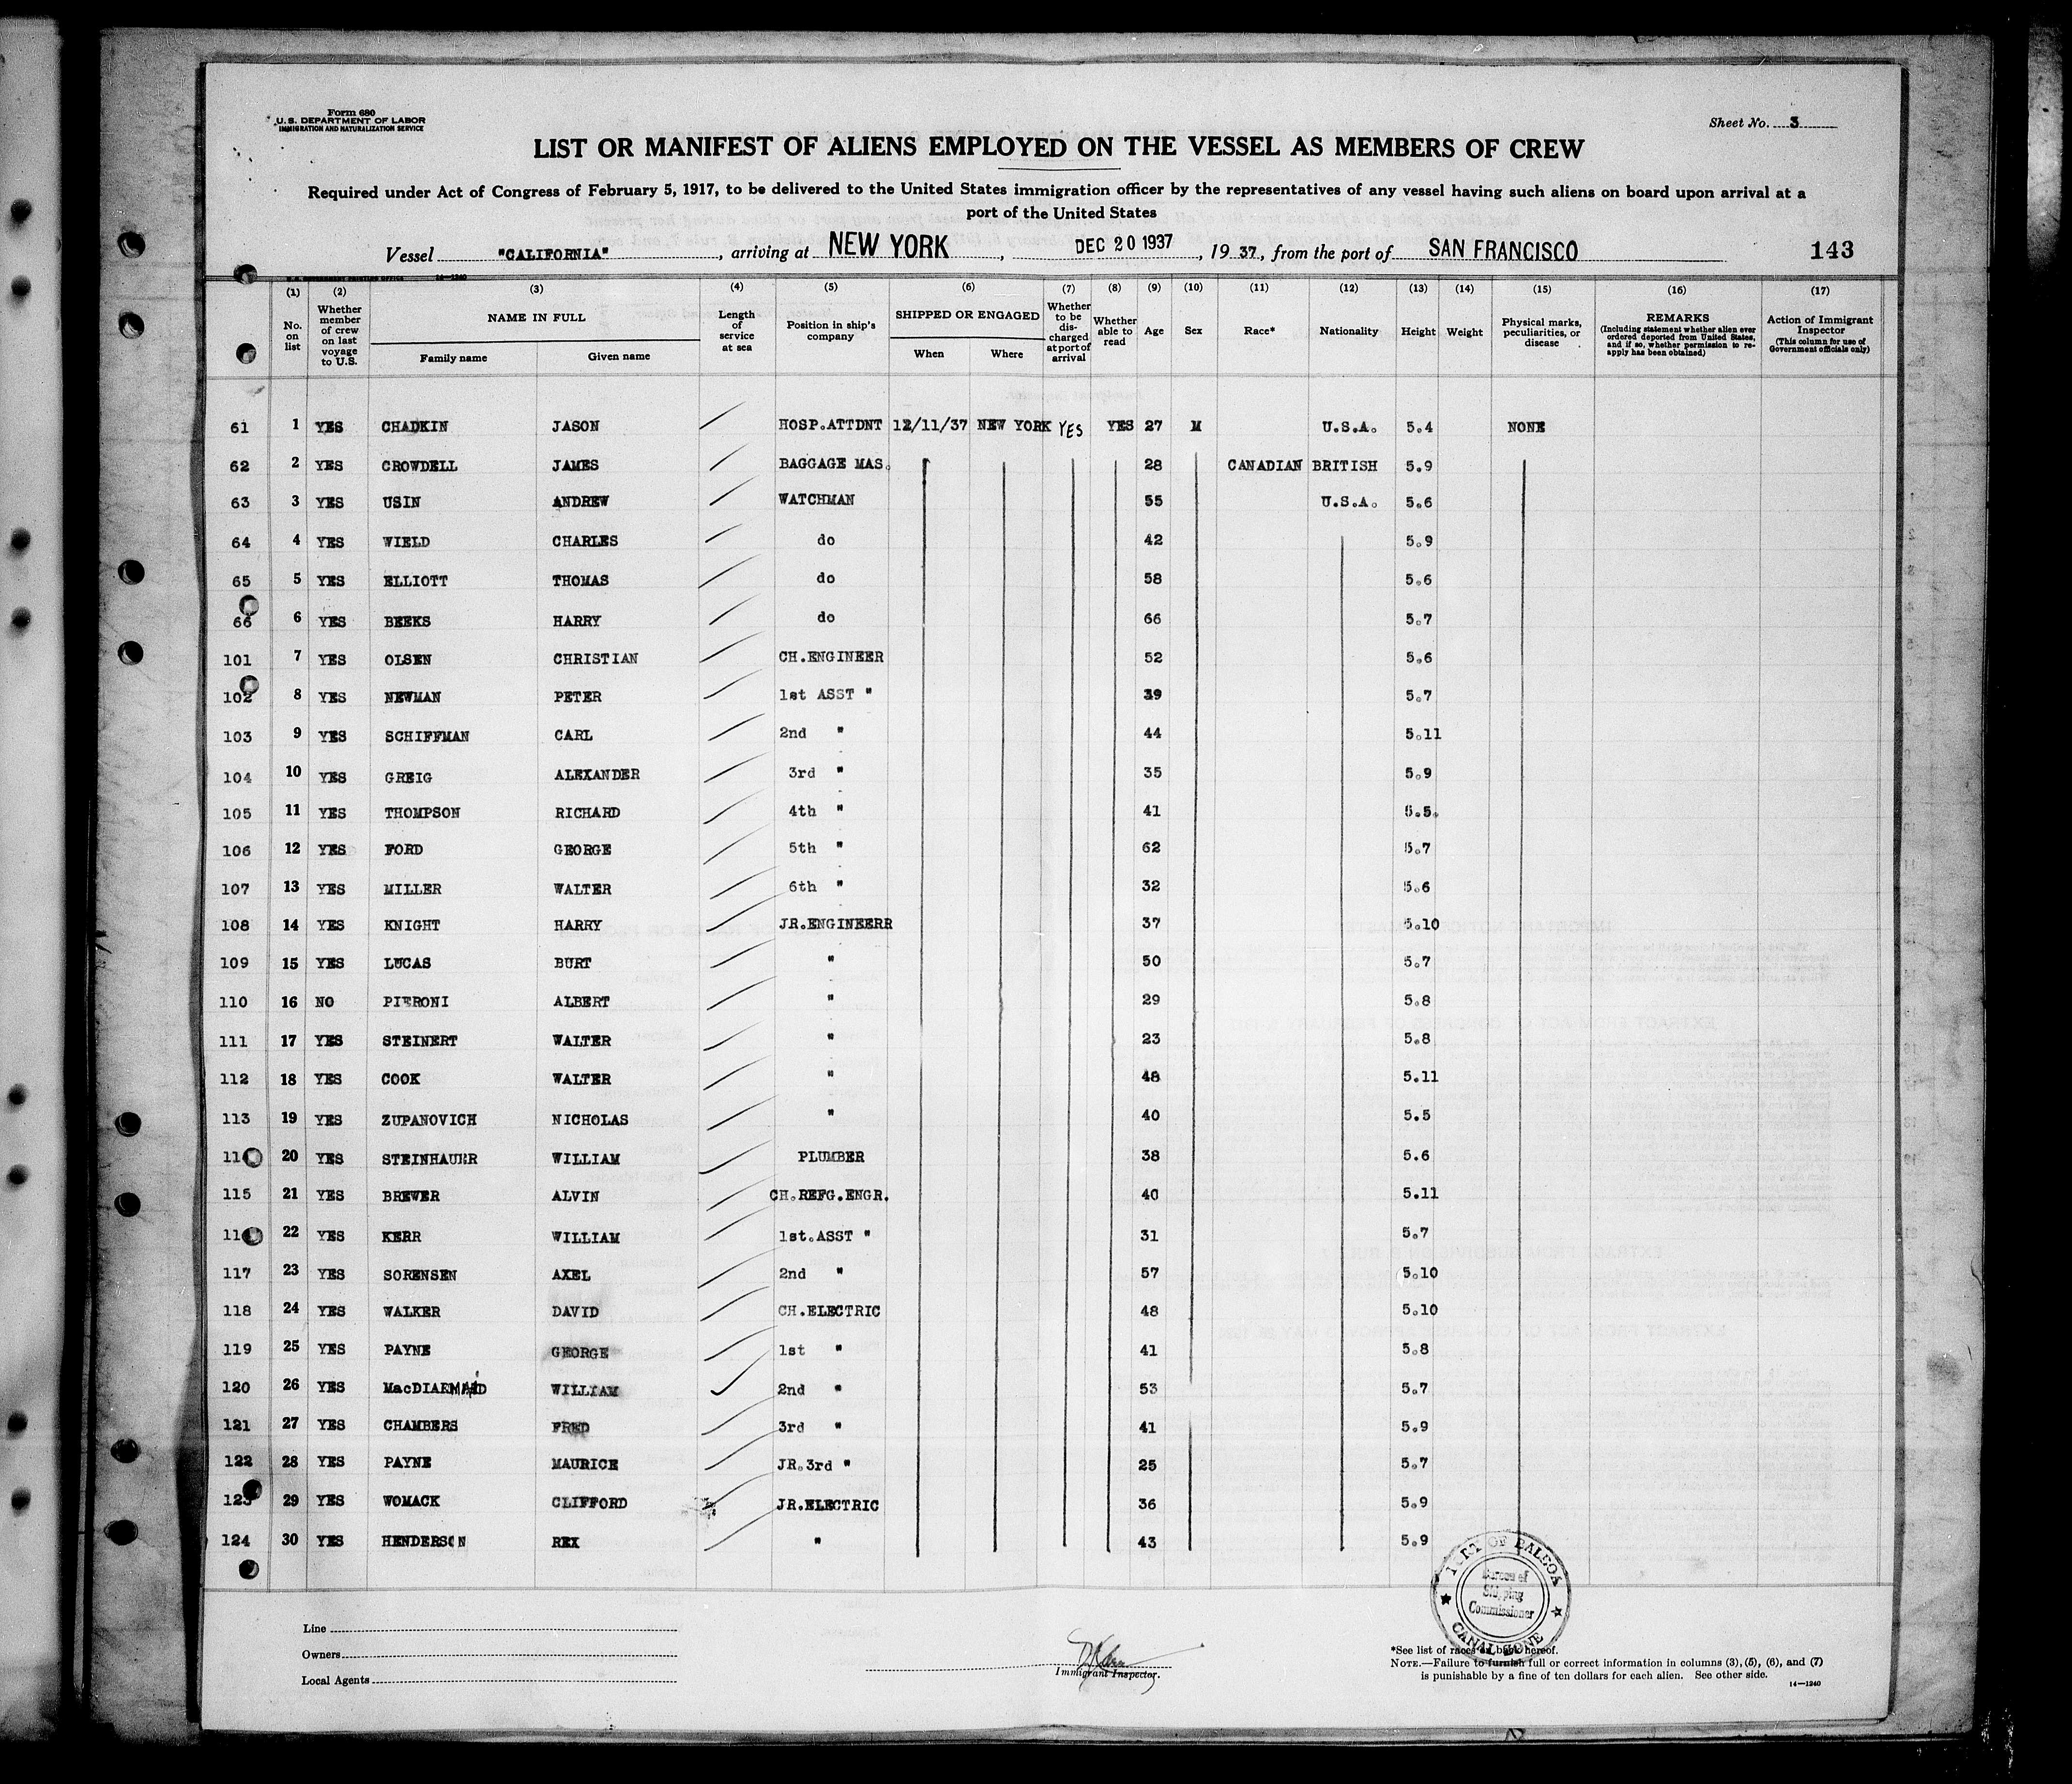 Form 680
U. S. DEPARTMENT OF LABOR
IMMIGRATION AND NATURALIZATION SERVICE
Sheet No. 3
LIST OR MANIFEST OF ALIENS EMPLOYED ON THE VESSEL AS MEMBERS OF CREW
Required under Act of Congress of February 5, 1917, to be delivered to the United States immigration officer by the representatives of any vessel having such aliens on board upon arrival at a
port of the United States
Vessel "CALIFORNIA", arriving at NEW YORK, DEC 20 1937, 19 37, from the port of SAN FRANCISCO 143
U.S. GOVERNMENT PRINTING OFFICE 14—1240
(1) (2) (3) (4) (5) (6) (7) (8) (9) (10) (11) (12) (13) (14) (15) (16) (17)
No. on list Whether member of crew on last voyage to U.S. NAME IN FULL Family name Given name Length of service at sea Position in ship's company SHIPPED OR ENGAGED When Where Whether to be discharged at port of arrival Whether able to read Age Sex Race* Nationality Height Weight Physical marks, peculiarities, or disease REMARKS (Including statement whether alien ever ordered deported from United States, and if so, whether permission to re-apply has been obtained) Action of Immigrant Inspector (This column for use of Government officials only)
61 1 YES CHADKIN JASON HOSP.ATTDNT 12/11/37 NEW YORK YES YES 27 M U.S.A. 5.4 NONE
62 2 YES CROWDELL JAMES BAGGAGE MAS. 28 CANADIAN BRITISH 5.9
63 3 YES USIN ANDREW WATCHMAN 55 U.S.A. 5.6
64 4 YES WIELD CHARLES do 42 5.9
65 5 YES ELLIOTT THOMAS do 58 5.6
66 6 YES BEEKS HARRY do 66 5.7
101 7 YES OLSEN CHRISTIAN CH.ENGINEER 52 5.6
102 8 YES NEWMAN PETER 1st ASST " 39 5.7
103 9 YES SCHIFFMAN CARL 2nd " 44 5.11
104 10 YES GREIG ALEXANDER 3rd " 35 5.9
105 11 YES THOMPSON RICHARD 4th " 41 5.5.
106 12 YES FORD GEORGE 5th " 62 5.7
107 13 YES MILLER WALTER 6th " 32 5.6
108 14 YES KNIGHT HARRY JR.ENGINEERR 37 5.10
109 15 YES LUCAS BURT " 50 5.7
110 16 NO PIERONI ALBERT " 29 5.8
111 17 YES STEINERT WALTER " 23 5.8
112 18 YES COOK WALTER " 48 5.11
113 19 YES ZUPANOVICH NICHOLAS " 40 5.5
11 20 YES STEINHAUER WILLIAM PLUMBER 38 5.6
115 21 YES BREWER ALVIN CH.REFG.ENGR. 40 5.11
11 22 YES KERR WILLIAM 1st.ASST " 31 5.7
117 23 YES SORENSEN AXEL 2nd " 57 5.10
118 24 YES WALKER DAVID CH.ELECTRIC 48 5.10
119 25 YES PAYNE GEORGE 1st " 41 5.8
120 26 YES MacDIARMAID WILLIAM 2nd " 53 5.7
121 27 YES CHAMBERS FRED 3rd " 41 5.9
122 28 YES PAYNE MAURICE JR.3rd " 25 5.7
123 29 YES WOMACK CLIFFORD JR.ELECTRIC 36 5.9
124 30 YES HENDERSON REX " 43 5.9
PORT OF BALBOA
Bureau of
Shipping
Commissioner
CANAL ZONE
Line
Owners
Local Agents
Immigrant Inspector.
*See list of races on back hereof.
NOTE.—Failure to furnish full or correct information in columns (3), (5), (6), and (7)
is punishable by a fine of ten dollars for each alien. See other side.
14—1240